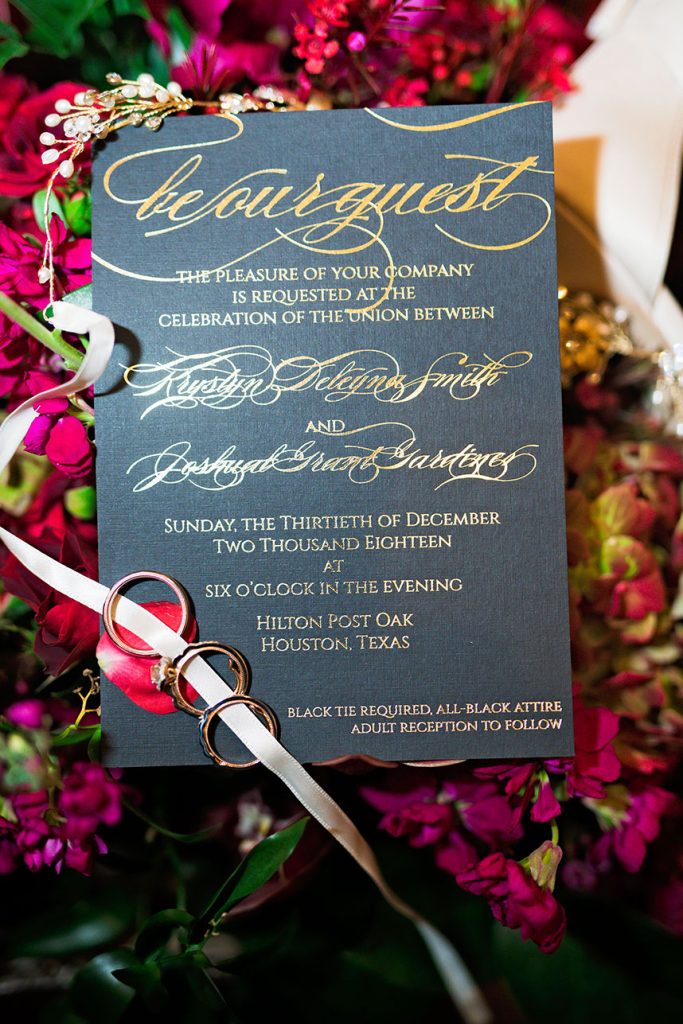 be our guest
THE PLEASURE OF YOUR COMPANY
IS REQUESTED AT THE
CELEBRATION OF THE UNION BETWEEN
Krystyn Deleyna Smith
AND
Joshual Grant Gardiner
SUNDAY, THE THIRTIETH OF DECEMBER
TWO THOUSAND EIGHTEEN
AT
SIX O'CLOCK IN THE EVENING
HILTON POST OAK
HOUSTON, TEXAS
BLACK TIE REQUIRED, ALL-BLACK ATTIRE
ADULT RECEPTION TO FOLLOW